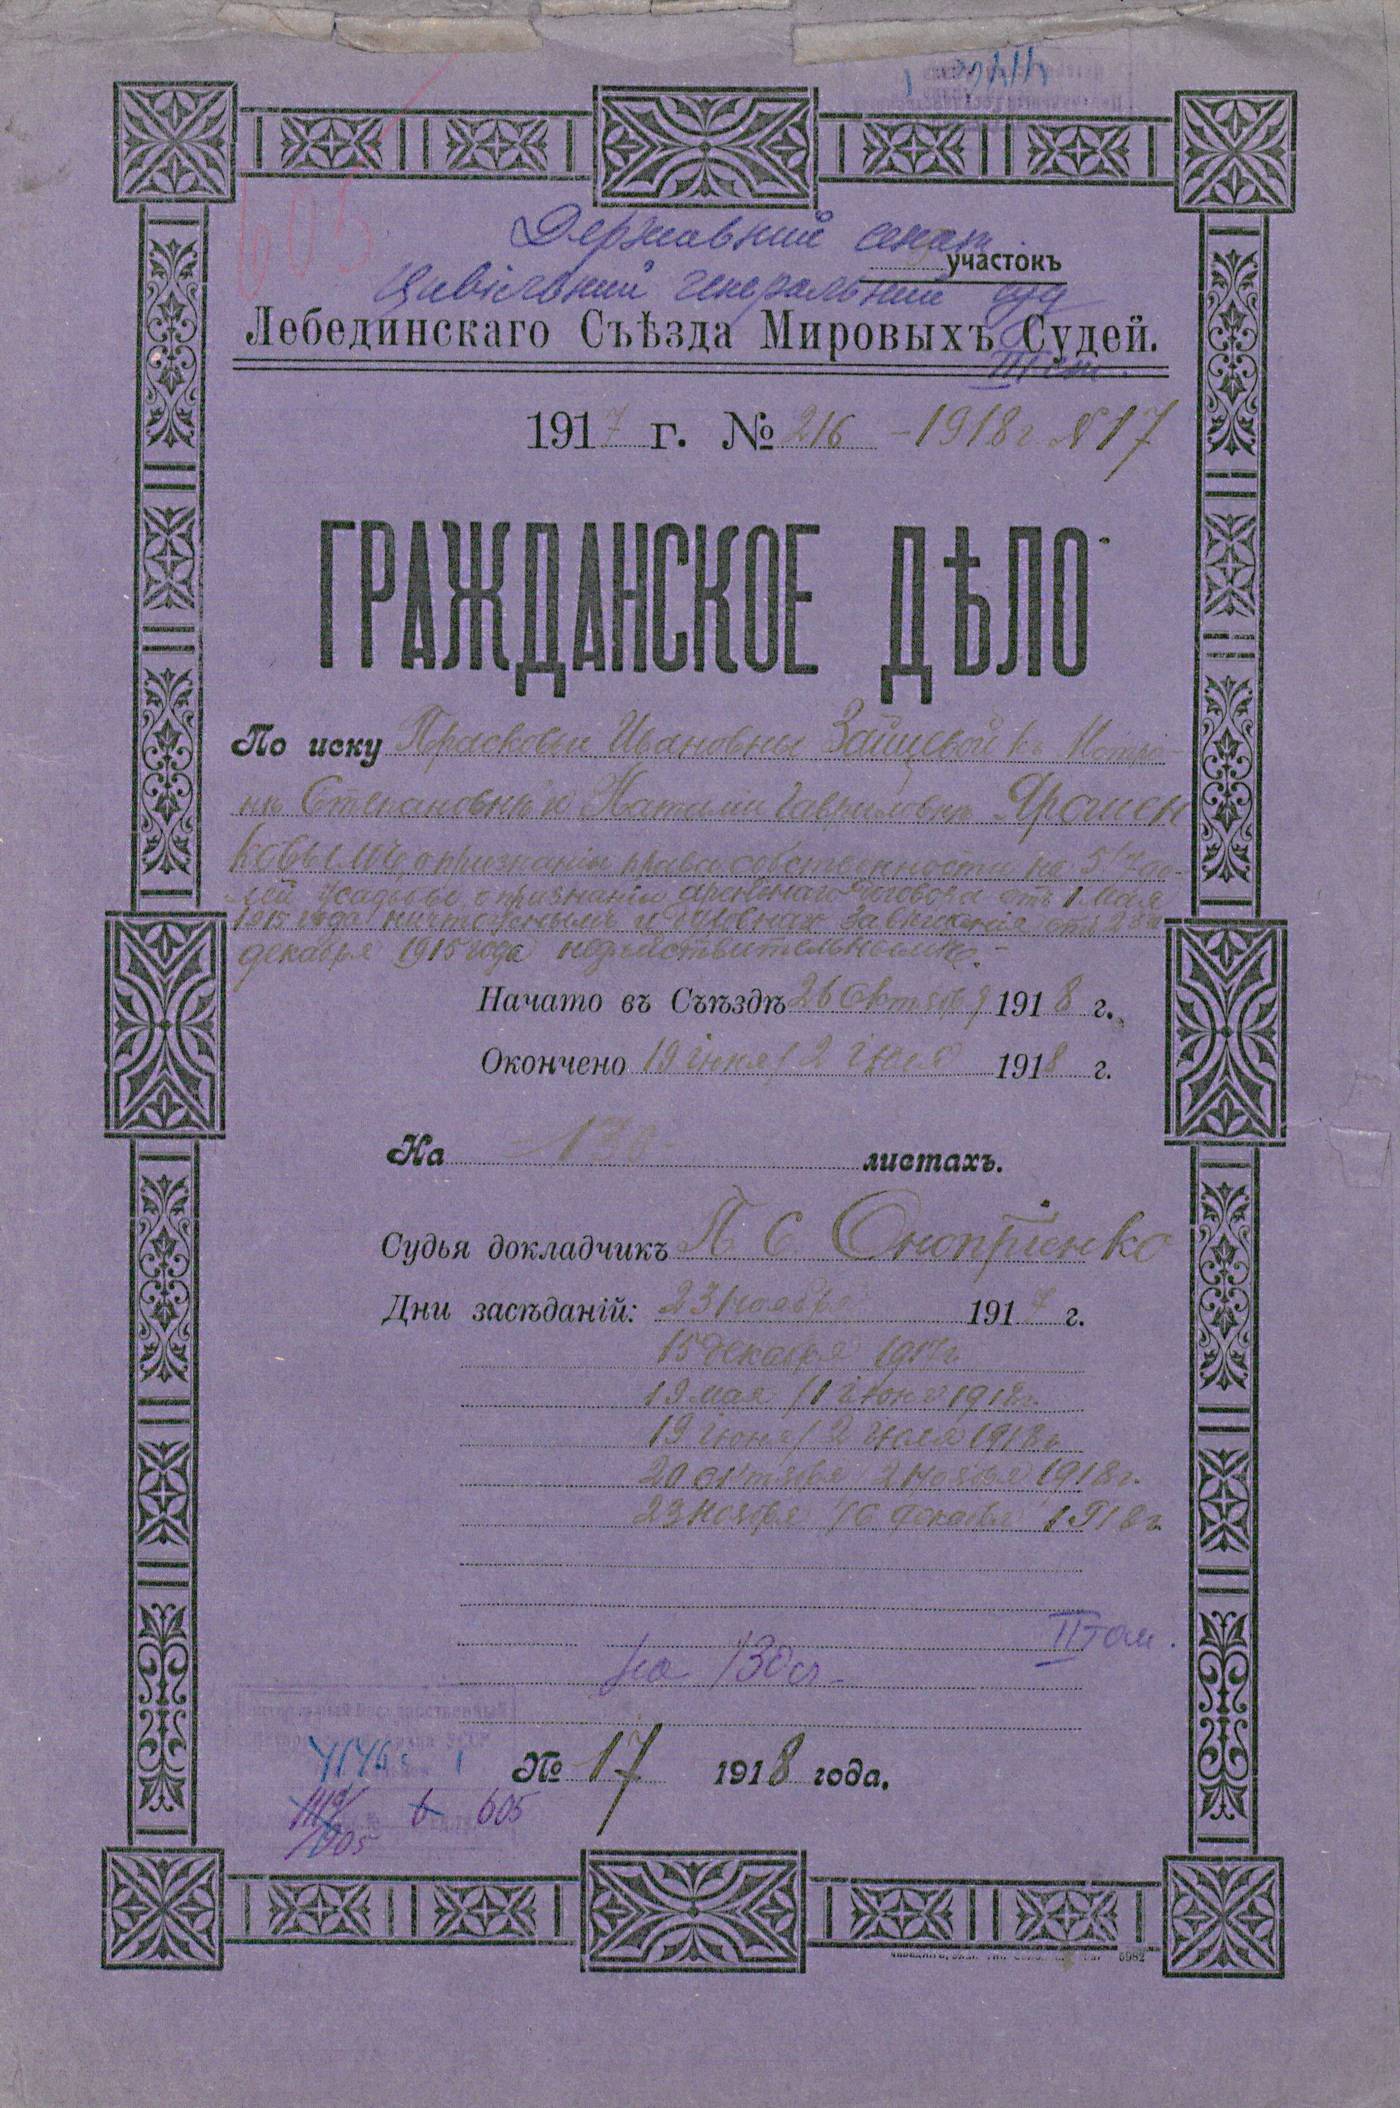 605
Державний сенат
участокъ
Цивільний генеральний суд
Лебединскаго Съѣзда Мировыхъ Судей.
III том.
1917 г. № 216 - 1918 г № 17
ГРАЖДАНСКОЕ ДѢЛО
По иску Прасковьи Ивановны Зайцевой къ
Степановнѣ и Наталіи Гавриловнѣ Ярошен
ковымъ, о признаніи права собственности на 5
усадьбы, о признаніи аренднаго договора отъ 1 Мая
1915 года ничтожнымъ и духовнаго завѣщанія отъ 28
декабря 1915 года недѣйствительнымъ.-
Начато въ Съѣздѣ 26 Октября 1918 г.
Окончено 19 іюня / 2 іюля 1918 г.
На листахъ.
Судья докладчикъ П С. Оноприенко
Дни засѣданій: 23 ноября 1917 г.
15 декабря 1917 г.
19 мая / 1 іюня 1918 г.
19 іюня / 2 іюля 1918 г.
20 октября 2 ноября 1918 г.
23 ноября / 6 декабря 1918 г.
II том.
на 130 л.
№ 17 1918 года.
6 605
5982